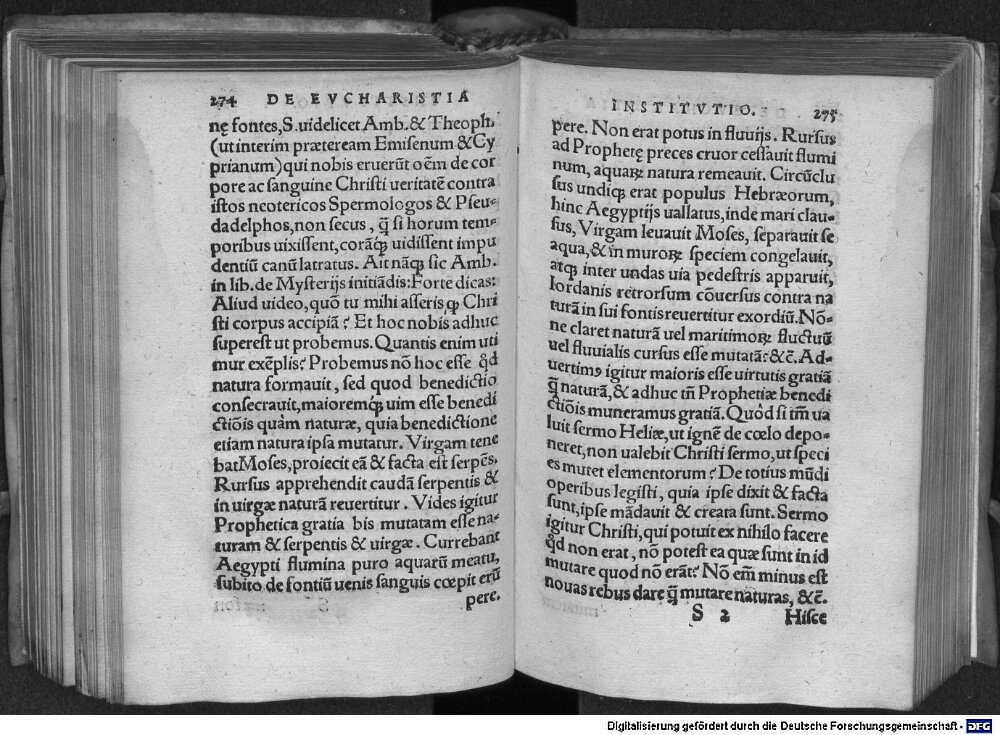 274 DE EVCHARISTIA
nę fontes, S. uidelicet Amb. & Theoph.
(ut interim præteream Emisenum & Cy
prianum) qui nobis eruerūt oēm de cor
pore ac sanguine Christi veritatē contra
istos neotericos Spermologos & Pseu-
dadelphos, non secus, q̄ si horum tem-
poribus uixissent, corāq; uidissent impu
dentiū canū latratus. Ait nāq; sic Amb.
in lib. de Mysterijs initiādis: Forte dicas:
Aliud uideo, quō tu mihi asseris q Chri
sti corpus accipiā? Et hoc nobis adhuc
superest ut probemus. Quantis enim uti
mur exēplis? Probemus nō hoc esse qd
natura formauit, sed quod benedictio
consecrauit, maioremq; uim esse benedi
ctiōis quàm naturæ, quia benedictione
etiam natura ipsa mutatur. Virgam tene
bat Moses, proiecit eā & facta est serpēs.
Rursus apprehendit caudā serpentis &
in uirgæ naturā reuertitur. Vides igitur
Prophetica gratia bis mutatam esse na-
turam & serpentis & uirgæ. Currebant
Aegypti flumina puro aquarū meatu,
subito de fontiū uenis sanguis cœpit erū
pere.
INSTITVTIO. 275
pere. Non erat potus in fluuijs. Rursus
ad Prophetę preces cruor cessauit flumi
num, aquaꝝ natura remeauit. Circūclu
sus undiq; erat populus Hebræorum,
hinc Aegyptijs uallatus, inde mari clau-
sus, Virgam leuauit Moses, separauit se
aqua, & in muroꝝ speciem congelauit,
atq; inter undas uia pedestris apparuit,
Iordanis retrorsum cōuersus contra na
turā in sui fontis reuertitur exordiū. Nō-
ne claret naturā uel maritimoꝝ fluctuū
uel fluuialis cursus esse mutatā? &c̄. Ad-
uertimꝰ igitur maioris esse uirtutis gratiā
q̄ naturā, & adhuc tn̄ Prophetiæ benedi
ctiōis muneramus gratiā. Quòd si tm̄ ua
luit sermo Heliæ, ut ignē de cœlo depo-
neret, non ualebit Christi sermo, ut speci
es mutet elementorum? De totius mūdi
operibus legisti, quia ipse dixit & facta
sunt, ipse mādauit & creata sunt. Sermo
igitur Christi, qui potuit ex nihilo facere
qd non erat, nō potest ea quæ sunt in id
mutare quod nō erāt? Nō em̄ minus est
nouas rebus dare q̄ mutare naturas, &c̄.
S 2 Hisce
Digitalisierung gefördert durch die Deutsche Forschungsgemeinschaft - DFG